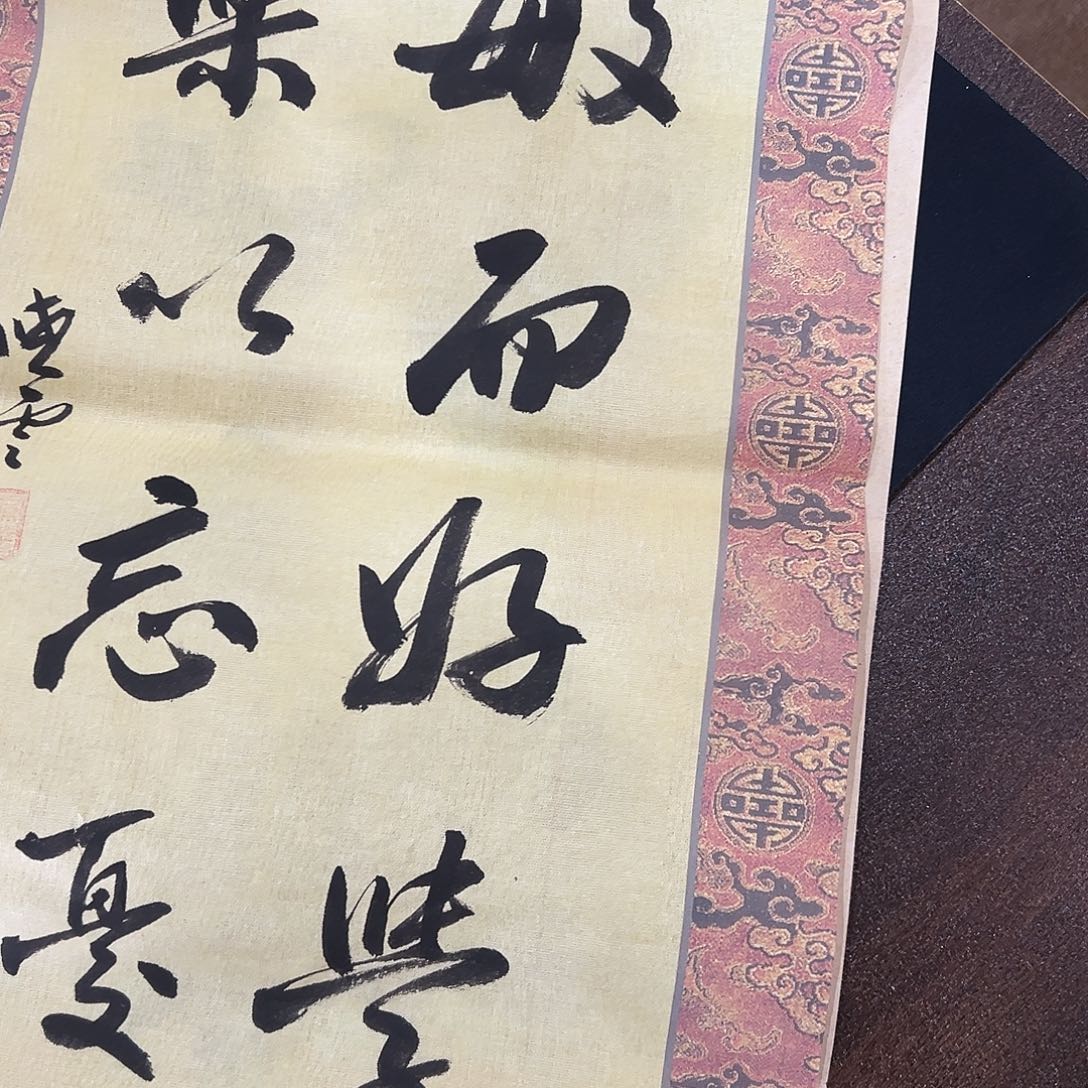 敏而好學
樂以忘憂
雲